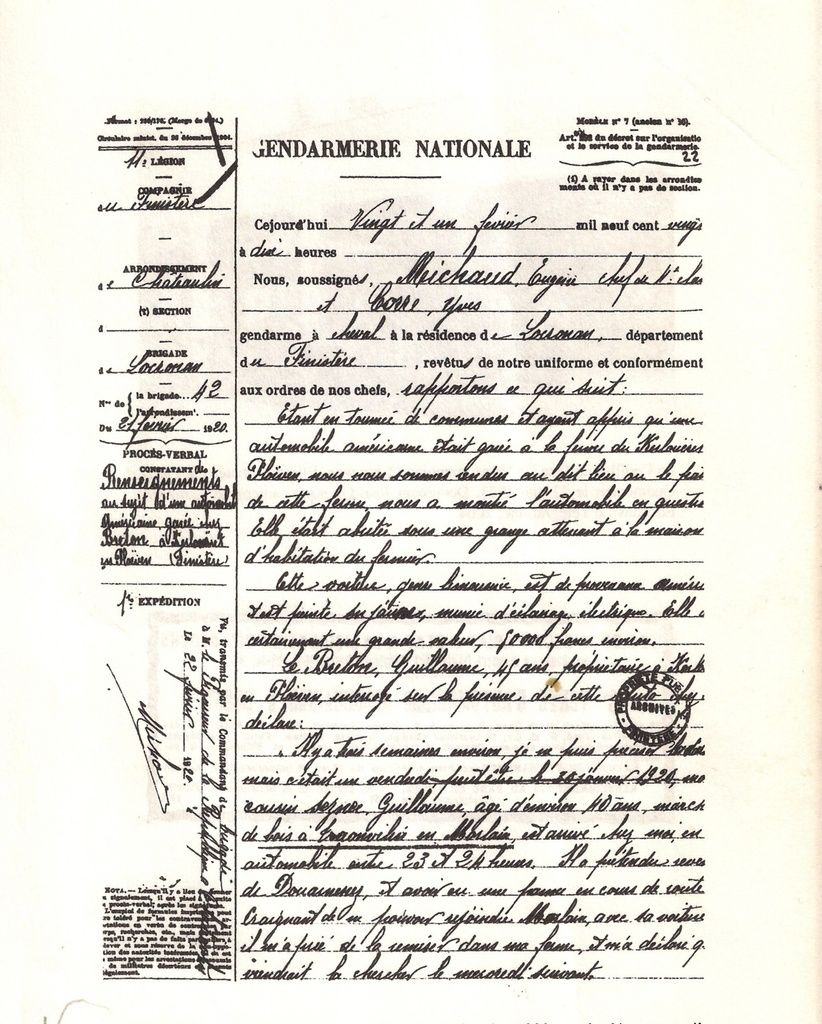 Format : (Marge de
Circulaire minist. du 26 décembre 1904.
11e LÉGION
COMPAGNIE
du Finistère
ARRONDISSEMENT
de Châteaulin
(1) SECTION
d
BRIGADE
de Locronan
Nos de { la brigade 42
l'arrondissemt.
Du 21 février 1920.
PROCÈS-VERBAL
CONSTATANT des
Renseignements
au sujet d'un automobile
Américaine garée chez
Breton à
en Ploëven (Finistère)
EXPÉDITION
Vu, transmis par le Commandant de brigade
à M. le Procureur de la République à
Le 22 février 1920.
MODÈLE N° 7 (ancien n° 36).
Art. du décret sur l'organisatio
et le service de la gendarmerie.
22
(1) A rayer dans les arrondisse
ments où il n'y a pas de section.
GENDARMERIE NATIONALE
Cejourd'hui Vingt et un février mil neuf cent vingt
à dix heures
Nous, soussignés, Meichaud, Eugène chef de
et Corre, Yves
gendarme à cheval à la résidence de Locronan, département
du Finistère, revêtus de notre uniforme et conformément
aux ordres de nos chefs, rapportons ce qui suit :
Etant en tournée de communes et ayant appris qu'une
automobile américaine était garée à la ferme de
Ploëven, nous nous sommes rendus au dit lieu ou le
de cette ferme nous a montré l'automobile en questio
Elle était abritée sous une grange attenant à la maison
d'habitation du fermier.
Cette voiture, genre limousine, est de provenance améri
et est peinte en jaune, munie d'éclairage électrique. Elle
certainement une grande valeur, 50000 francs environ.
Le Breton, Guillaume, 45 ans, propriétaire à
en Ploëven, interrogé sur la présence de cette auto chez
déclare :
" Il y a trois semaines environ, je ne puis préciser la date
mais c'était un vendredi peut-être le 30 janvier 1920, mo
cousin Guillaume, âgé d'environ 40 ans, march
de bois à en Morlaix, est arrivé chez moi, en
automobile entre 23 et 24 heures. Il a prétendu
de Douarnenez, et avoir eu une panne en cours de route
Craignant de ne pouvoir rejoindre Morlaix, avec sa voiture
il m'a prié de la remiser dans ma ferme, et m'a déclaré q
viendrait la chercher le mercredi suivant.
PROPRIÉTÉ PUB
ARCHIVES
NOTA. — Lorsqu'il y a lieu